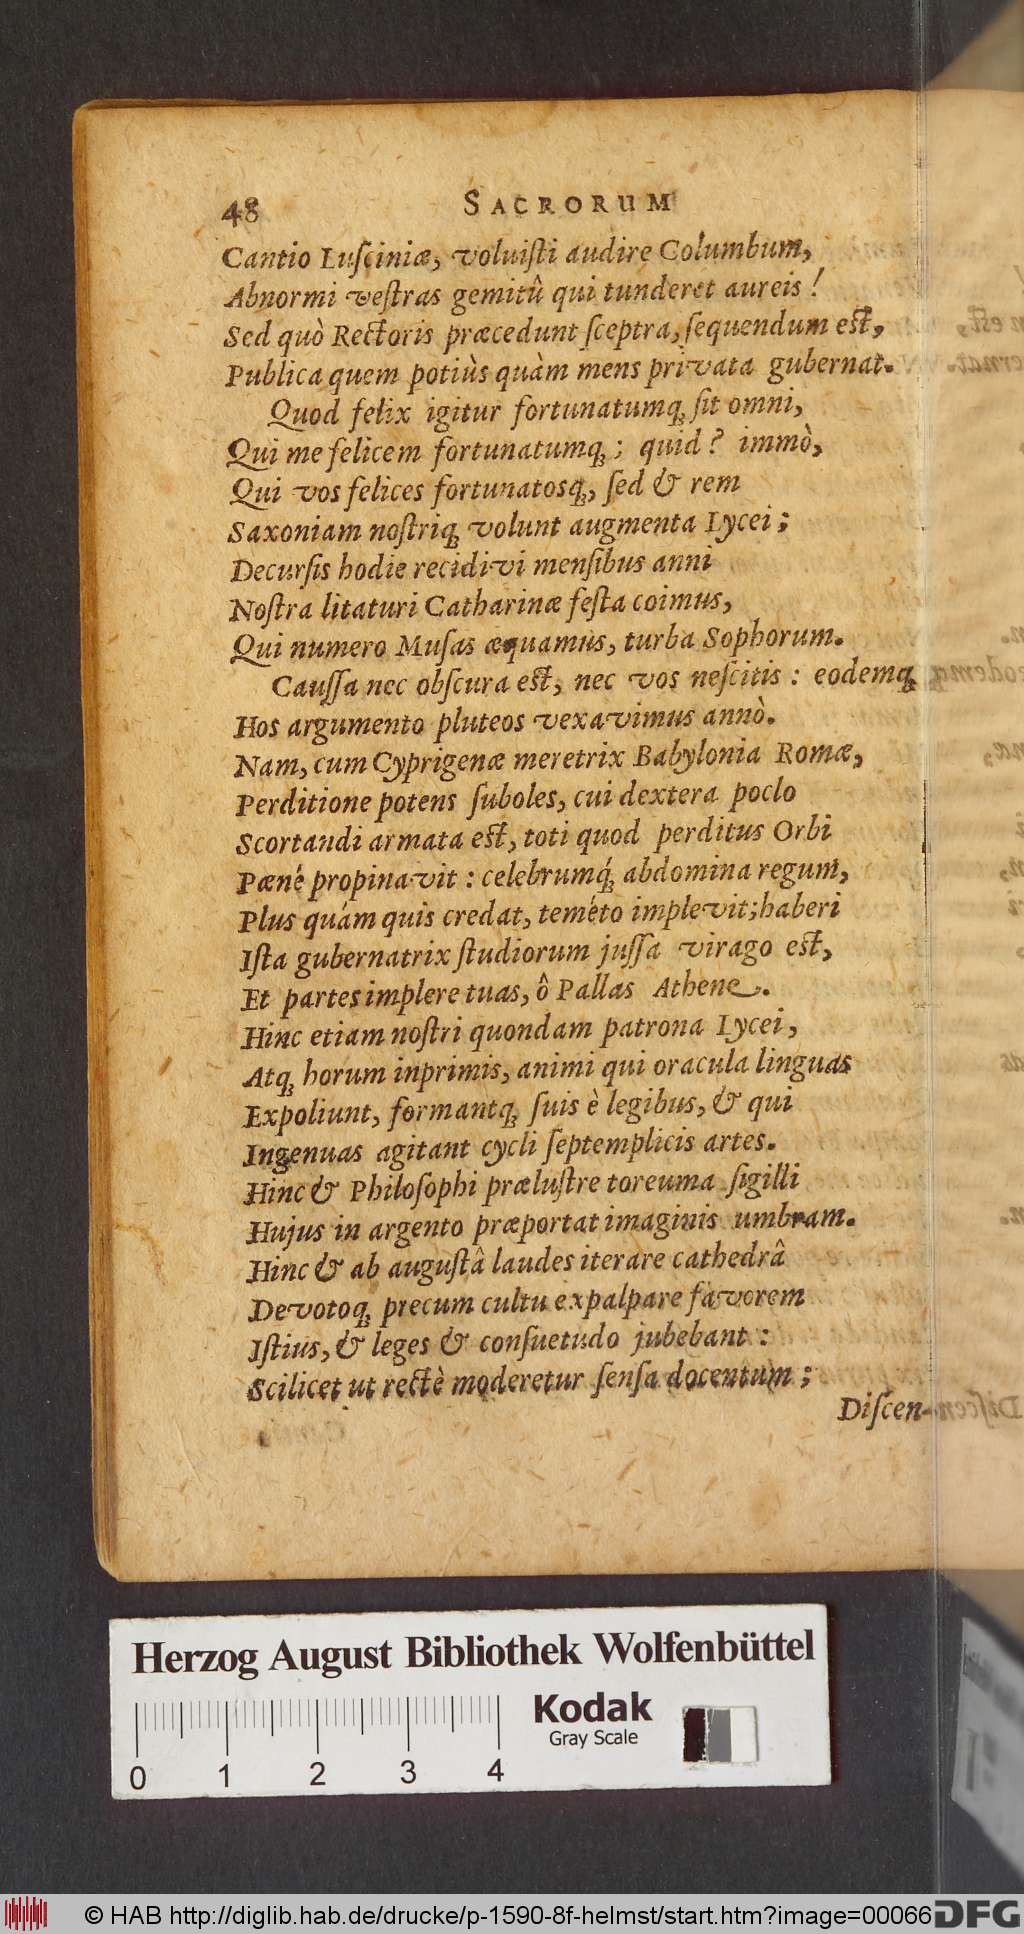 48 SACRORUM
Cantio Luſciniæ, voluiſti audire Columbum,
Abnormi veſtras gemitû qui tunderet aureis!
Sed quò Rectoris præcedunt ſceptra, ſequendum est,
Publica quem potiùs quàm mens privata gubernat.
Quod felix igitur fortunatumq́; ſit omni,
Qui me felicem fortunatumq́; ; quid? immò,
Qui vos felices fortunatosq́;, ſed & rem
Saxoniam noſtriq́; volunt augmenta Lycei;
Decurſis hodie recidivi menſibus anni
Noſtra litaturi Catharinæ feſta coimus,
Qui numero Muſas æquamus, turba Sophorum.
Cauſſa nec obſcura est, nec vos neſcitis: eodemq́;
Hos argumento pluteos vexavimus annò.
Nam, cum Cyprigenæ meretrix Babylonia Romæ,
Perditione potens ſuboles, cui dextera poclo
Scortandi armata est, toti quod perditus Orbi
Pæné propinavit: celebrumq́; abdomina regum,
Plus quám quis credat, teméto implevit; haberi
Iſta gubernatrix ſtudiorum juſſa virago est,
Et partes implere tuas, ô Pallas Athene.
Hinc etiam noſtri quondam patrona Lycei,
Atq́; horum inprimis, animi qui oracula linguas
Expoliunt, formantq́; ſuis è legibus, & qui
Ingenuas agitant cycli ſeptemplicis artes.
Hinc & Philoſophi præluſtre toreuma ſigilli
Hujus in argento præportat imaginis umbram.
Hinc & ab auguſtâ laudes iterare cathedrâ
Devotoq́; precum cultu expalpare favorem
Iſtius, & leges & conſuetudo jubebant:
Scilicet ut rectè moderetur ſenſa docentum;
Diſcen-
Herzog August Bibliothek Wolfenbüttel
Kodak
Gray Scale
0 1 2 3 4
© HAB http://diglib.hab.de/drucke/p-1590-8f-helmst/start.htm?image=00066
DFG